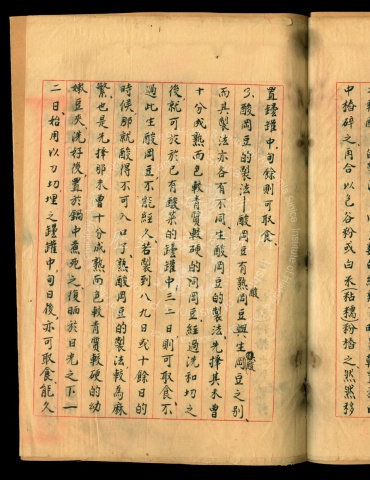 置罈罐中,旬餘則可取食。
3.酸岡豆的製法──酸岡豆有熟岡豆與生岡豆之別,
而其製法亦各有不同。生酸岡豆的製法,先擇其未曾
十分成熟而色較青質較硬的岡豆經過洗和切之
後,就可於於已有酸菜的罈罐中三二日則可取食。不
過此生酸岡豆不能經久,若製到八九日或十餘日的
時候,那就酸得不可入口了。熟酸岡豆的製法較為麻
繁,也是先擇那未曾十分成熟而色較青質較硬的幼
嫩豆夾洗好後,置於鍋中煮死之後晒於日光之下一
二日,始用以刀切埋之罈罐中,旬日後亦可取食,能久
中搗碎之再合以包谷粉或白米粘糯粉搗之,然然移